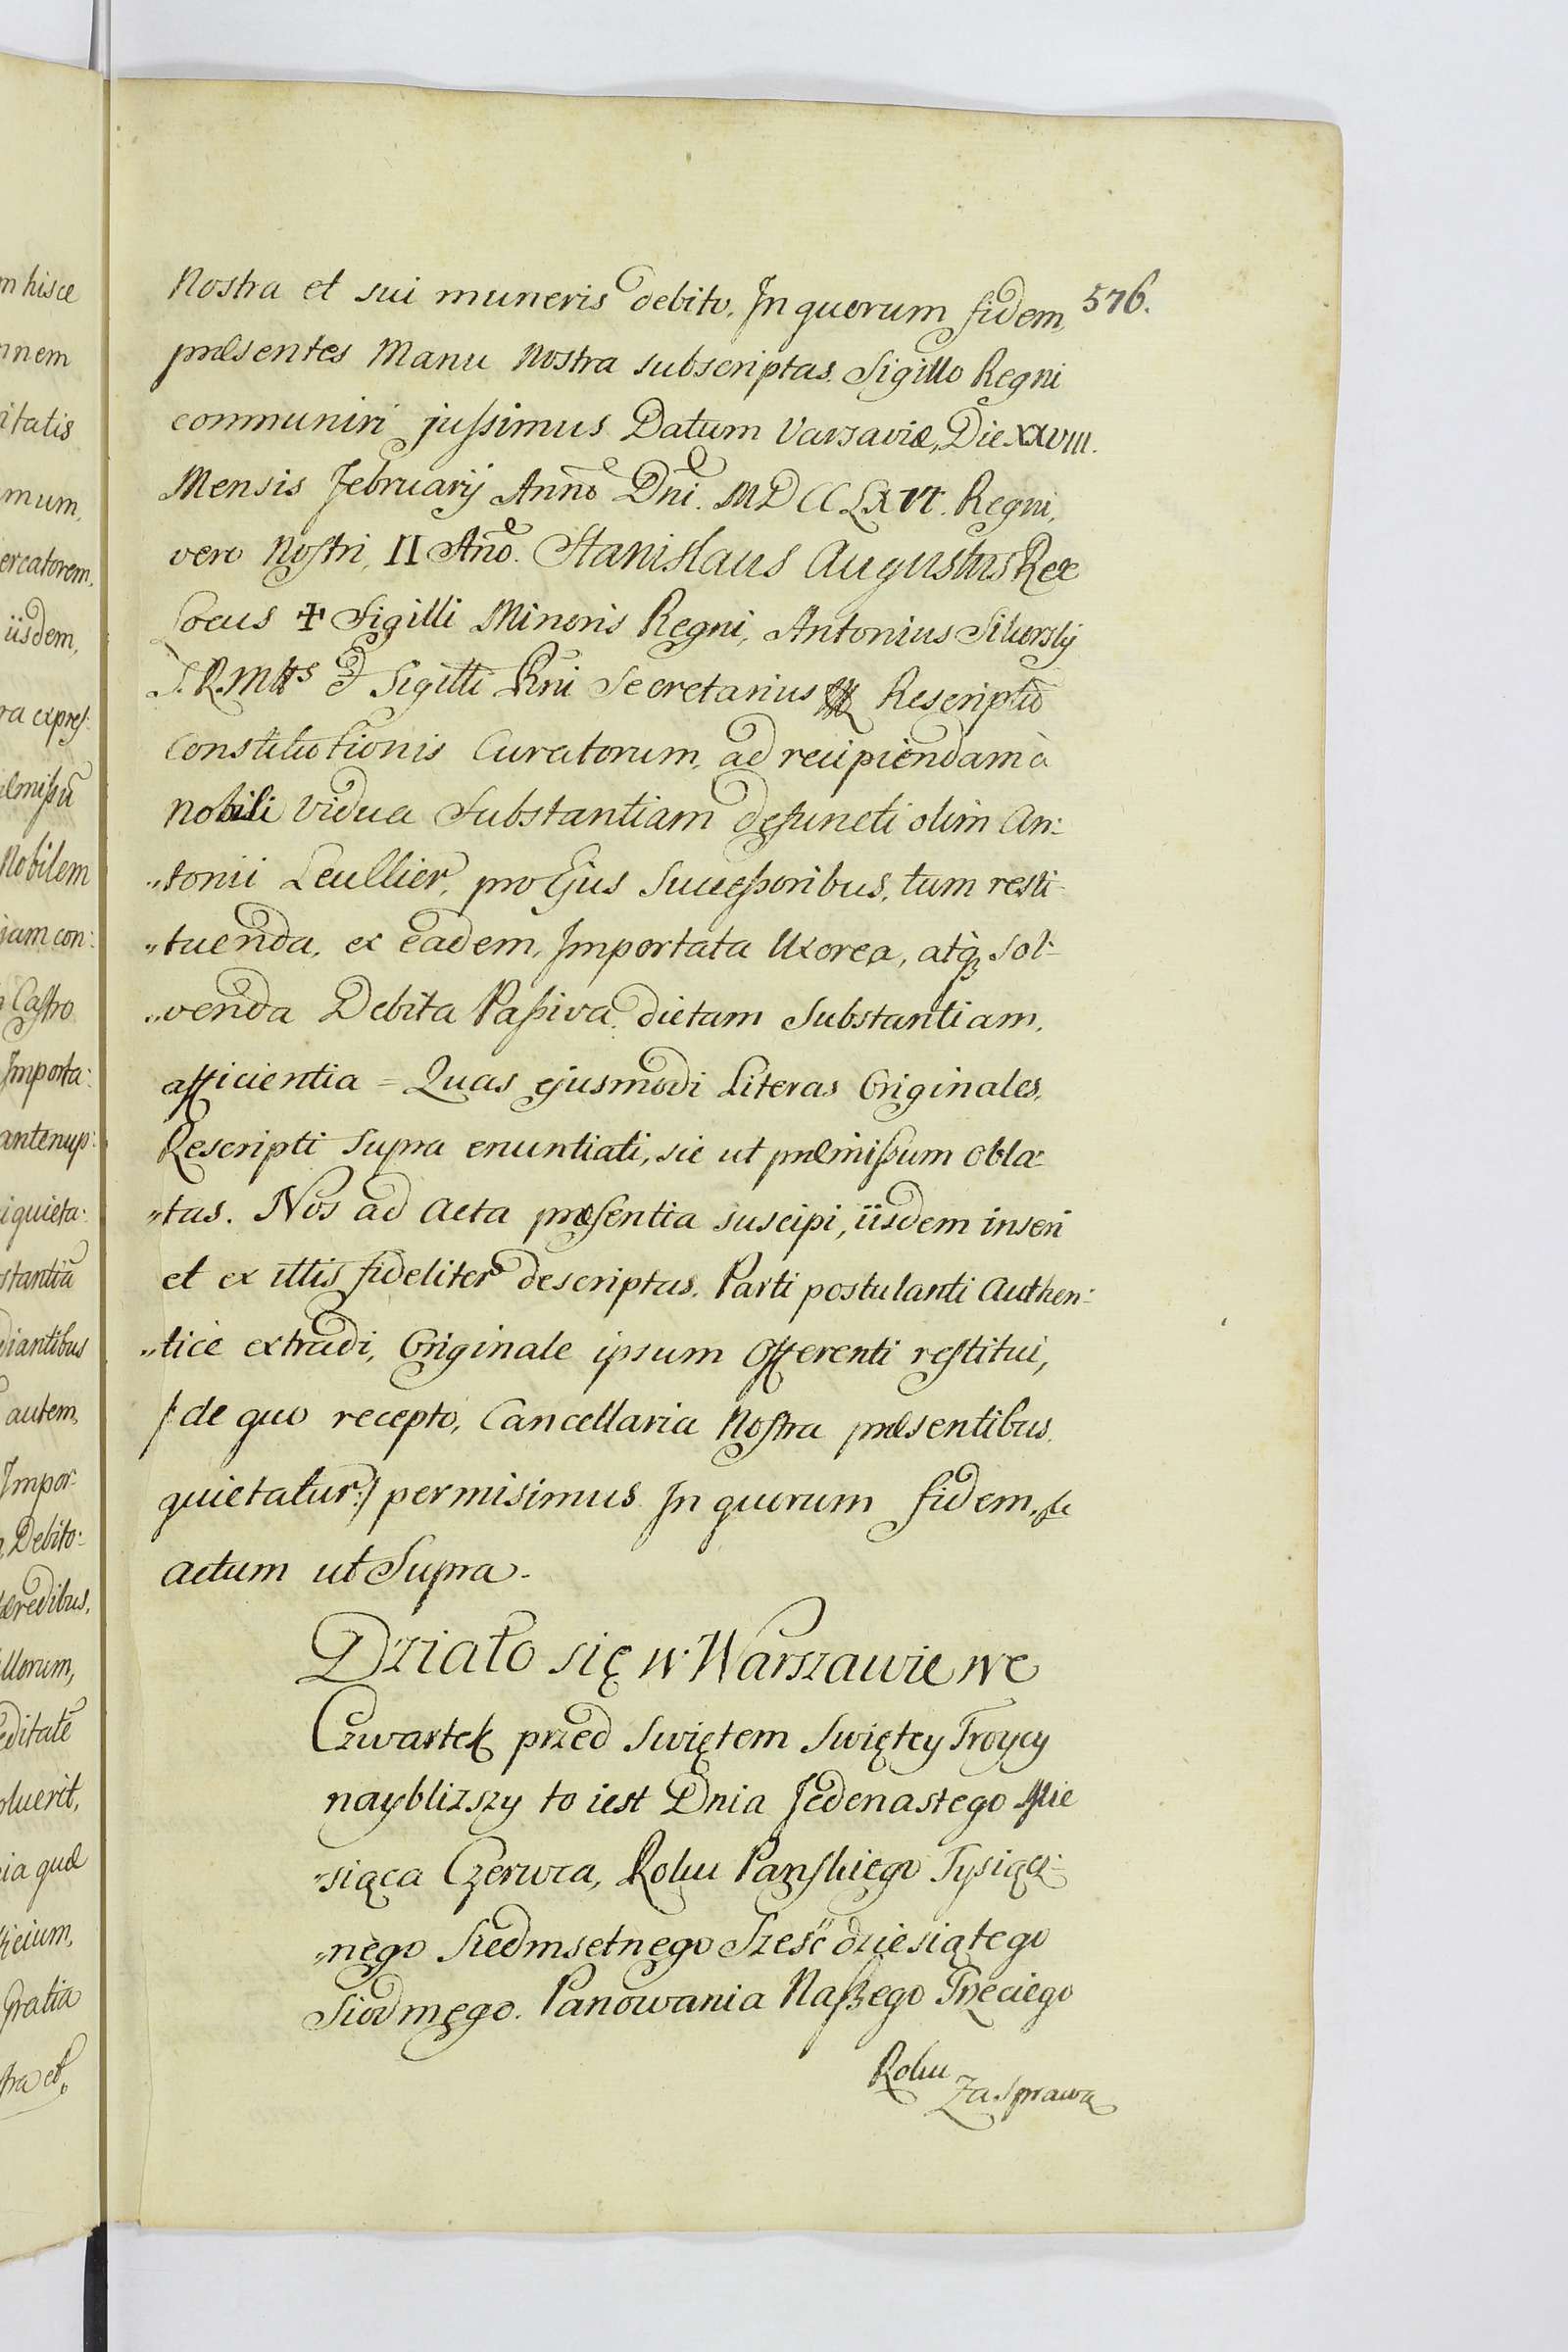 m hisce
nnem
itatis
mum,
ercatorem,
iisdem,
ra expres:
Nobilem
jam con:
Castro
Importa:
antenup:
quieta:
stantiā
diantibus
autem,
Impor:
Debito:
æredibus,
llorum,
editatē
oluerit,
ia quæ
icium,
Gratia
tra et
576.
Nostra et sui muneris debito. In quorum fidem,
præsentes Manu Nostra subscriptas. Sigillo Regni
communiri jussimus Datum Varsaviæ, Die XXVIII.
Mensis February Anno Dni. MDCCLXVI. Regni,
vero Nostri, II Ano. Stanislaus Augustus Rex
Locus ✠ Sigilli Minoris Regni, Antonius Sikorsky
S. R. Mttis & Sigilli Rni Secretarius Rescriptū
Constitutionis Curatorum, ad recipiendam à
Nobili Vidua Substantiam defuncti olim An:
„tonii Leullier, pro Ejus Successoribus, tum resti-
„tuenda, ex eadem, Importata Uxorea, atq; sol-
„venda Debita Passiva dictam Substantiam,
afficientia = Quas ejusmodi Literas Originales,
Rescripti Supra enuntiati, sic ut præmissum obla-
„tas. Nos ad Acta præsentia suscipi, iisdem inseri
et ex illis fideliter descriptas. Parti postulanti Authen:
„ticè extradi, Originale ipsum Offerenti restitui,
/: de quo recepto, Cancellaria Nostra præsentibus
quietatur :/ permisimus In quorum fidem,
actum ut Supra.
Działo się w Warszawie we
Czwartek przed Swiętem Swiętey Troycy
nayblizszy to iest Dnia Jedenastego Mie
„siąca Czerwca, Roku Pańskiego Tysiącz-
„nego Siedmsetnego Sześćdziesiątego
Siodmego. Panowania Naszego Trzeciego
Roku
Za Sprawą